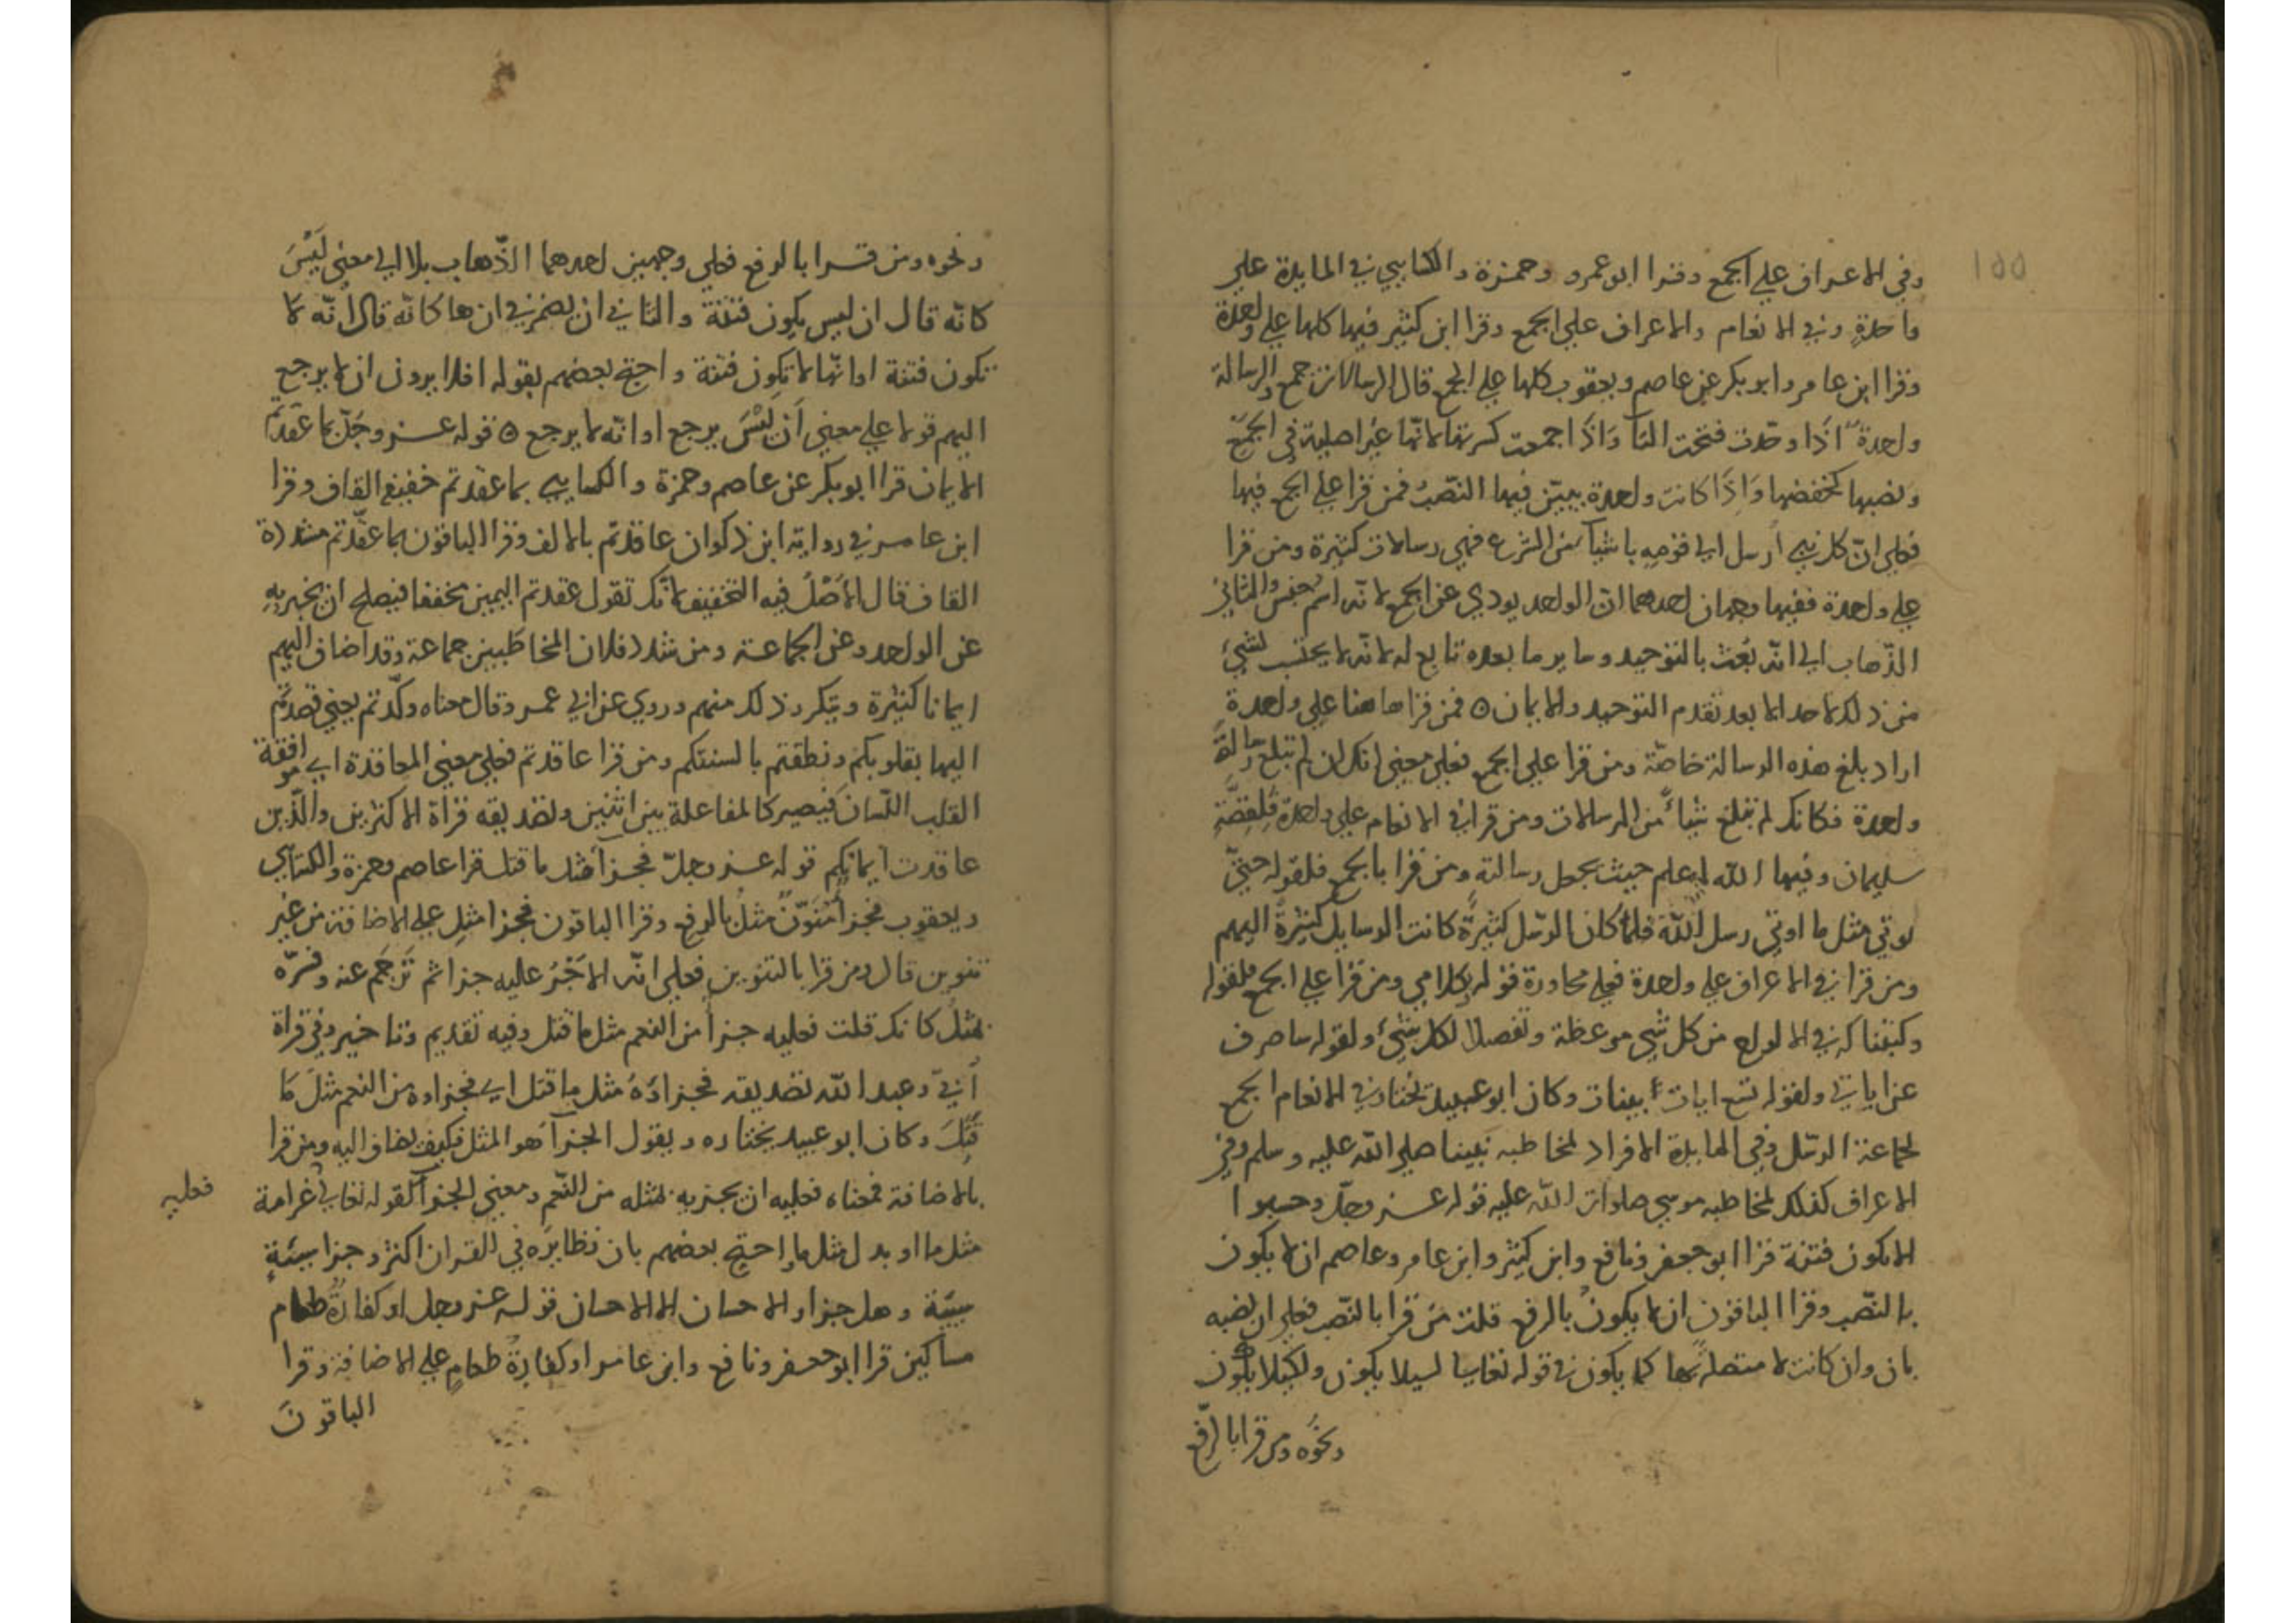 ١٥٥
وفي الاعراف علي الجمع وقرا ابو عمرو وحمزة والكسايي في المايدة علي
واحدةٍ وفي الانعام والاعراف علي الجمع وقرا ابن كثير فيها كلها علي واحدة
وقرا ابن عامر وابو بكر عن عاصم ويعقوب كلها علي الجمع قال الرسالات جمع والرسالة
واحدة اذا وحّدت فتحت التآ وَاذَا جمعت كسرتها لانّها غير اصلية في الجَمْع
ونصبها كخفضها وَاِذَا كانت واحدة يبيّن فيها النّصبُ فمن قرا علي الجمع فيها
فعلي انّ كل نبي اُرسل الي قومه باشيآ من الشرع فهي رسالات كثيرة ومن قرا
علي واحدة ففيها وجهان احدهما انّ الواحد يودي عن الجمع لانّه اسم جنس والثاني
الذّهاب الي انّه بُعث بالتوحيد وما بعده تابع له لانّه لا يحتسب لشيءٍ
من ذلك لاحد الا بعد تقدم التوحيد والايمان ٥ فمن قرا هاهنا علي واحدة
اراد بلغ هذه الرسالة خاصّة ومن قرا علي الجمع فعلي معني انك ان لم تبلغ رسالةً
واحدة فكانك لم تبلغ شيأً من الرسالات ومن قرا في الانعام علي واحدة فلقصّةِ
سليمان وفيها الله اعلم حيث يجعل رسالته ومن قرا بالجمع فلقوله حتيّ
نوتي مثل ما اوتي رسل اللّه فلمّا كان الرّسل كثيرةً كانت الرسايل كثيرةً اليهم
ومن قرا في الاعراف علي واحدة فعلي محاورة قوله بكلامي ومن قرا علي الجمع فلقوله
وكتبنا له في الالواح من كل شي موعظة وتفصيلا لكل شيءٍ ولقوله ساصرف
عن اياتي ولقوله تسع ايات بينات وكان ابو عبيد يختار في الانعام الجمع
لجماعة الرسّل وفي المايدة الافراد لمخاطبه نبينا صلي الله عليه وسلم وفي
الاعراف كذلك لمخاطبه موسي صلوات الله عليه قوله عـز وجلّ وحسبوا
الا تكون فتنة قرا ابو جعفر ونافع وابن كثير وابن عامر وعاصم ان لا يكون
بالنصّب وقرا الباقون ان لا يكونُ بالرفع قلت مَن قرا بالنصّب فعلي ان نصبه
بان وان كانت لا متصلة بها كما يكون في قوله تعالي ليلا يكون ولكيلا يكون
ونحْوه ومن قرا بالرّفع
ونحوه ومن قـرا بالرفع فعلي وجهين احدهما الذّهاب بلا الي معني لَيْسَ
كانّه قال ان ليس يكون فتنة والثاني ان يضمر في ان ها كانّه قال انّه لا
تكون فتنة او انّها لا تكون فتنة واحتج بعضهم بقوله افلا يرون ان لا يرجع
اليهم قولا علي معني اَن لَيْسَ يرجع او انّه لا يرجع ٥ قوله عـز وجَلّ بما عَقّدتُم
الايمان قرا ابو بكر عن عاصم وحمزة والكسايي بما عقدتم خفيف القاف وقرا
ابن عامـر في رواية ابن ذكوان عاقدتم بالالف وقرا الباقون بما عقّدتم مشددة
القاف قال الاَصْلُ فيه التخفيف لانّك تقول عقدتم اليمين مخففا فيصلح ان يخبر بهِ
عن الواحد وعن الجماعـة ومن شدد فلان المخاطَبين جماعة وقد اضاف اليهم
ايمانا كثيرة ويتكرر ذلك منهم وروي عن ابي عمـرو قال معناه وكّدتم يعني قصدتُم
اليها بقلوبكم ونطقتم بالسنتكم ومن قرا عاقدتم فعلي معني المعاقدة اي موافقة
القلب اللّسان فيصير كالمفاعلة بين اثنين وتصديقه قراة الاكثرين والّذين
عاقدت ايمانكم قوله عـز وجلّ فجـزآ مثل ما قتل قرا عاصم وحمزة والكسايي
ويعقوب فجزآ منَوّنًٌ مثلُ بالرفع وقرا الباقون فجزا مثلِ علي الاضافة من غير
تنوين قال ومن قرا بالتنوين فعلي انّه الاَخْبرُ عليه جزا ثم تَرْجَم عنه وفسّره
بمثلُ كانك قلت فعليه جـزآ من النعم مثل ما قتل وفيه تقديم وتاخير وفي قراة
اُبيّ وعبد الله تصديقه فجزاؤهُ مثل ما قتل اي فجزاوه من النعم مثلَ مَا
قُتِلَ وكان ابو عبيد يختاره ويقول الجزآ هو المثل فكيف يضاف اليه ومن قرا
بالاضافة فمعناه فعليه ان يجزيه بمثله من النّعم ومعني الجزآ لقوله تعالي غرامة
فعليه
مثل ما او بدل مثل ما واحتج بعضهم بان نظايرَه في القران اكثر وجزا سيّئةٍ
سيّئة وهل جزاو الاحسان الا الاحسان قوله عـز وجل او كفارةٌ طعام
مساكين قرا ابو جعفر ونافع وابن عامر او كفارةُ طعامِ علي الاضافة وقرا
الباقونَ